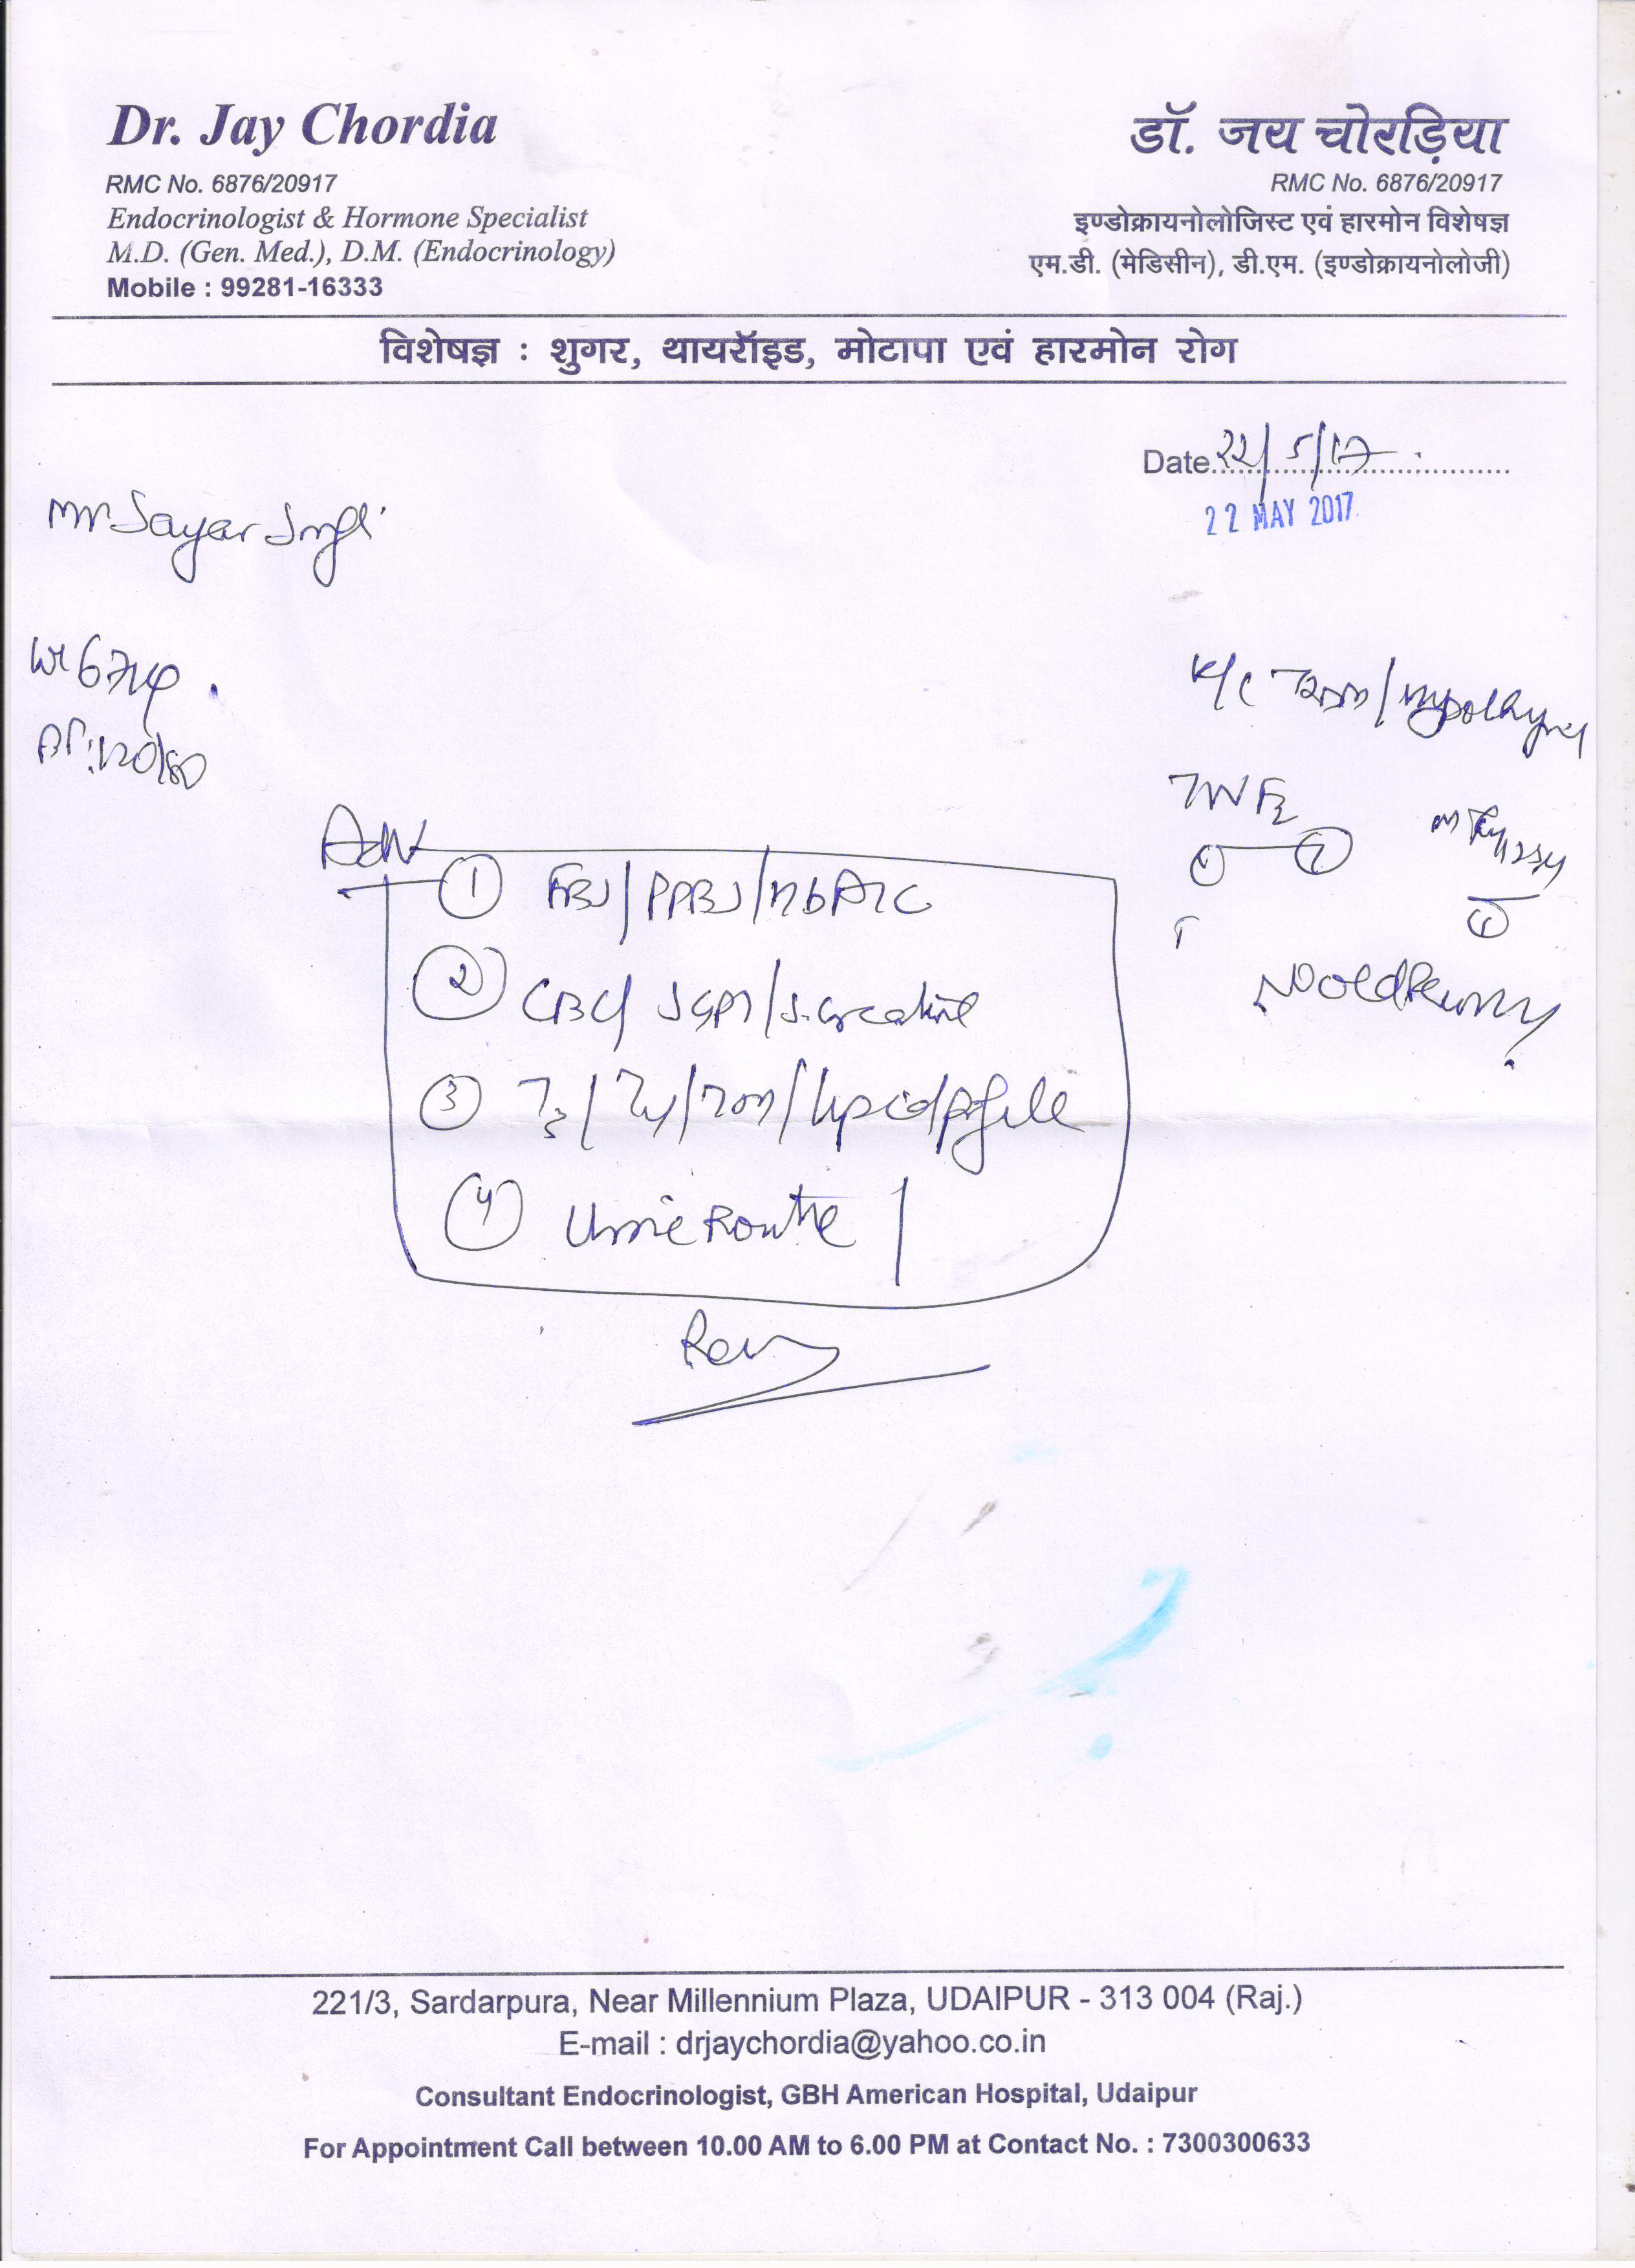 Dr. Jay Chordia
RMC No. 6876/20917
Endocrinologist & Hormone Specialist
M.D. (Gen. Med.), D.M. (Endocrinology)
Mobile : 99281-16333
डॉ. जय चोरड़िया
RMC No. 6876/20917
इण्डोक्रायनोलोजिस्ट एवं हारमोन विशेषज्ञ
एम.डी. (मेडिसीन), डी.एम. (इण्डोक्रायनोलोजी)
विशेषज्ञ : शुगर, थायरॉइड, मोटापा एवं हारमोन रोग
Date 22/5/17
22 MAY 2017
Mr Sayar Singh
Wt 67kg
BP: 120/80
K/C T2DM/Hypothy
Adv
① FBS/PPBS/HbA1C
② CBC/SGPT/S.creatine
③ T3/T4/TSH/lipid profile
④ Urine Routine
No old
Rev
221/3, Sardarpura, Near Millennium Plaza, UDAIPUR - 313 004 (Raj.)
E-mail : drjaychordia@yahoo.co.in
Consultant Endocrinologist, GBH American Hospital, Udaipur
For Appointment Call between 10.00 AM to 6.00 PM at Contact No. : 7300300633